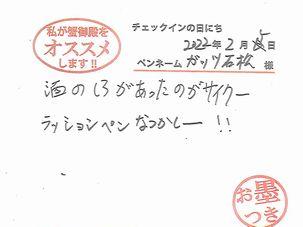 私が蟹御殿を
オススメ
します!!
チェックインの日にち
2022年2月5日
ペンネーム ガッツ石松 様
酒のしろがあったのがサイクー
ラッションペンなつかしー!!
お墨
つき